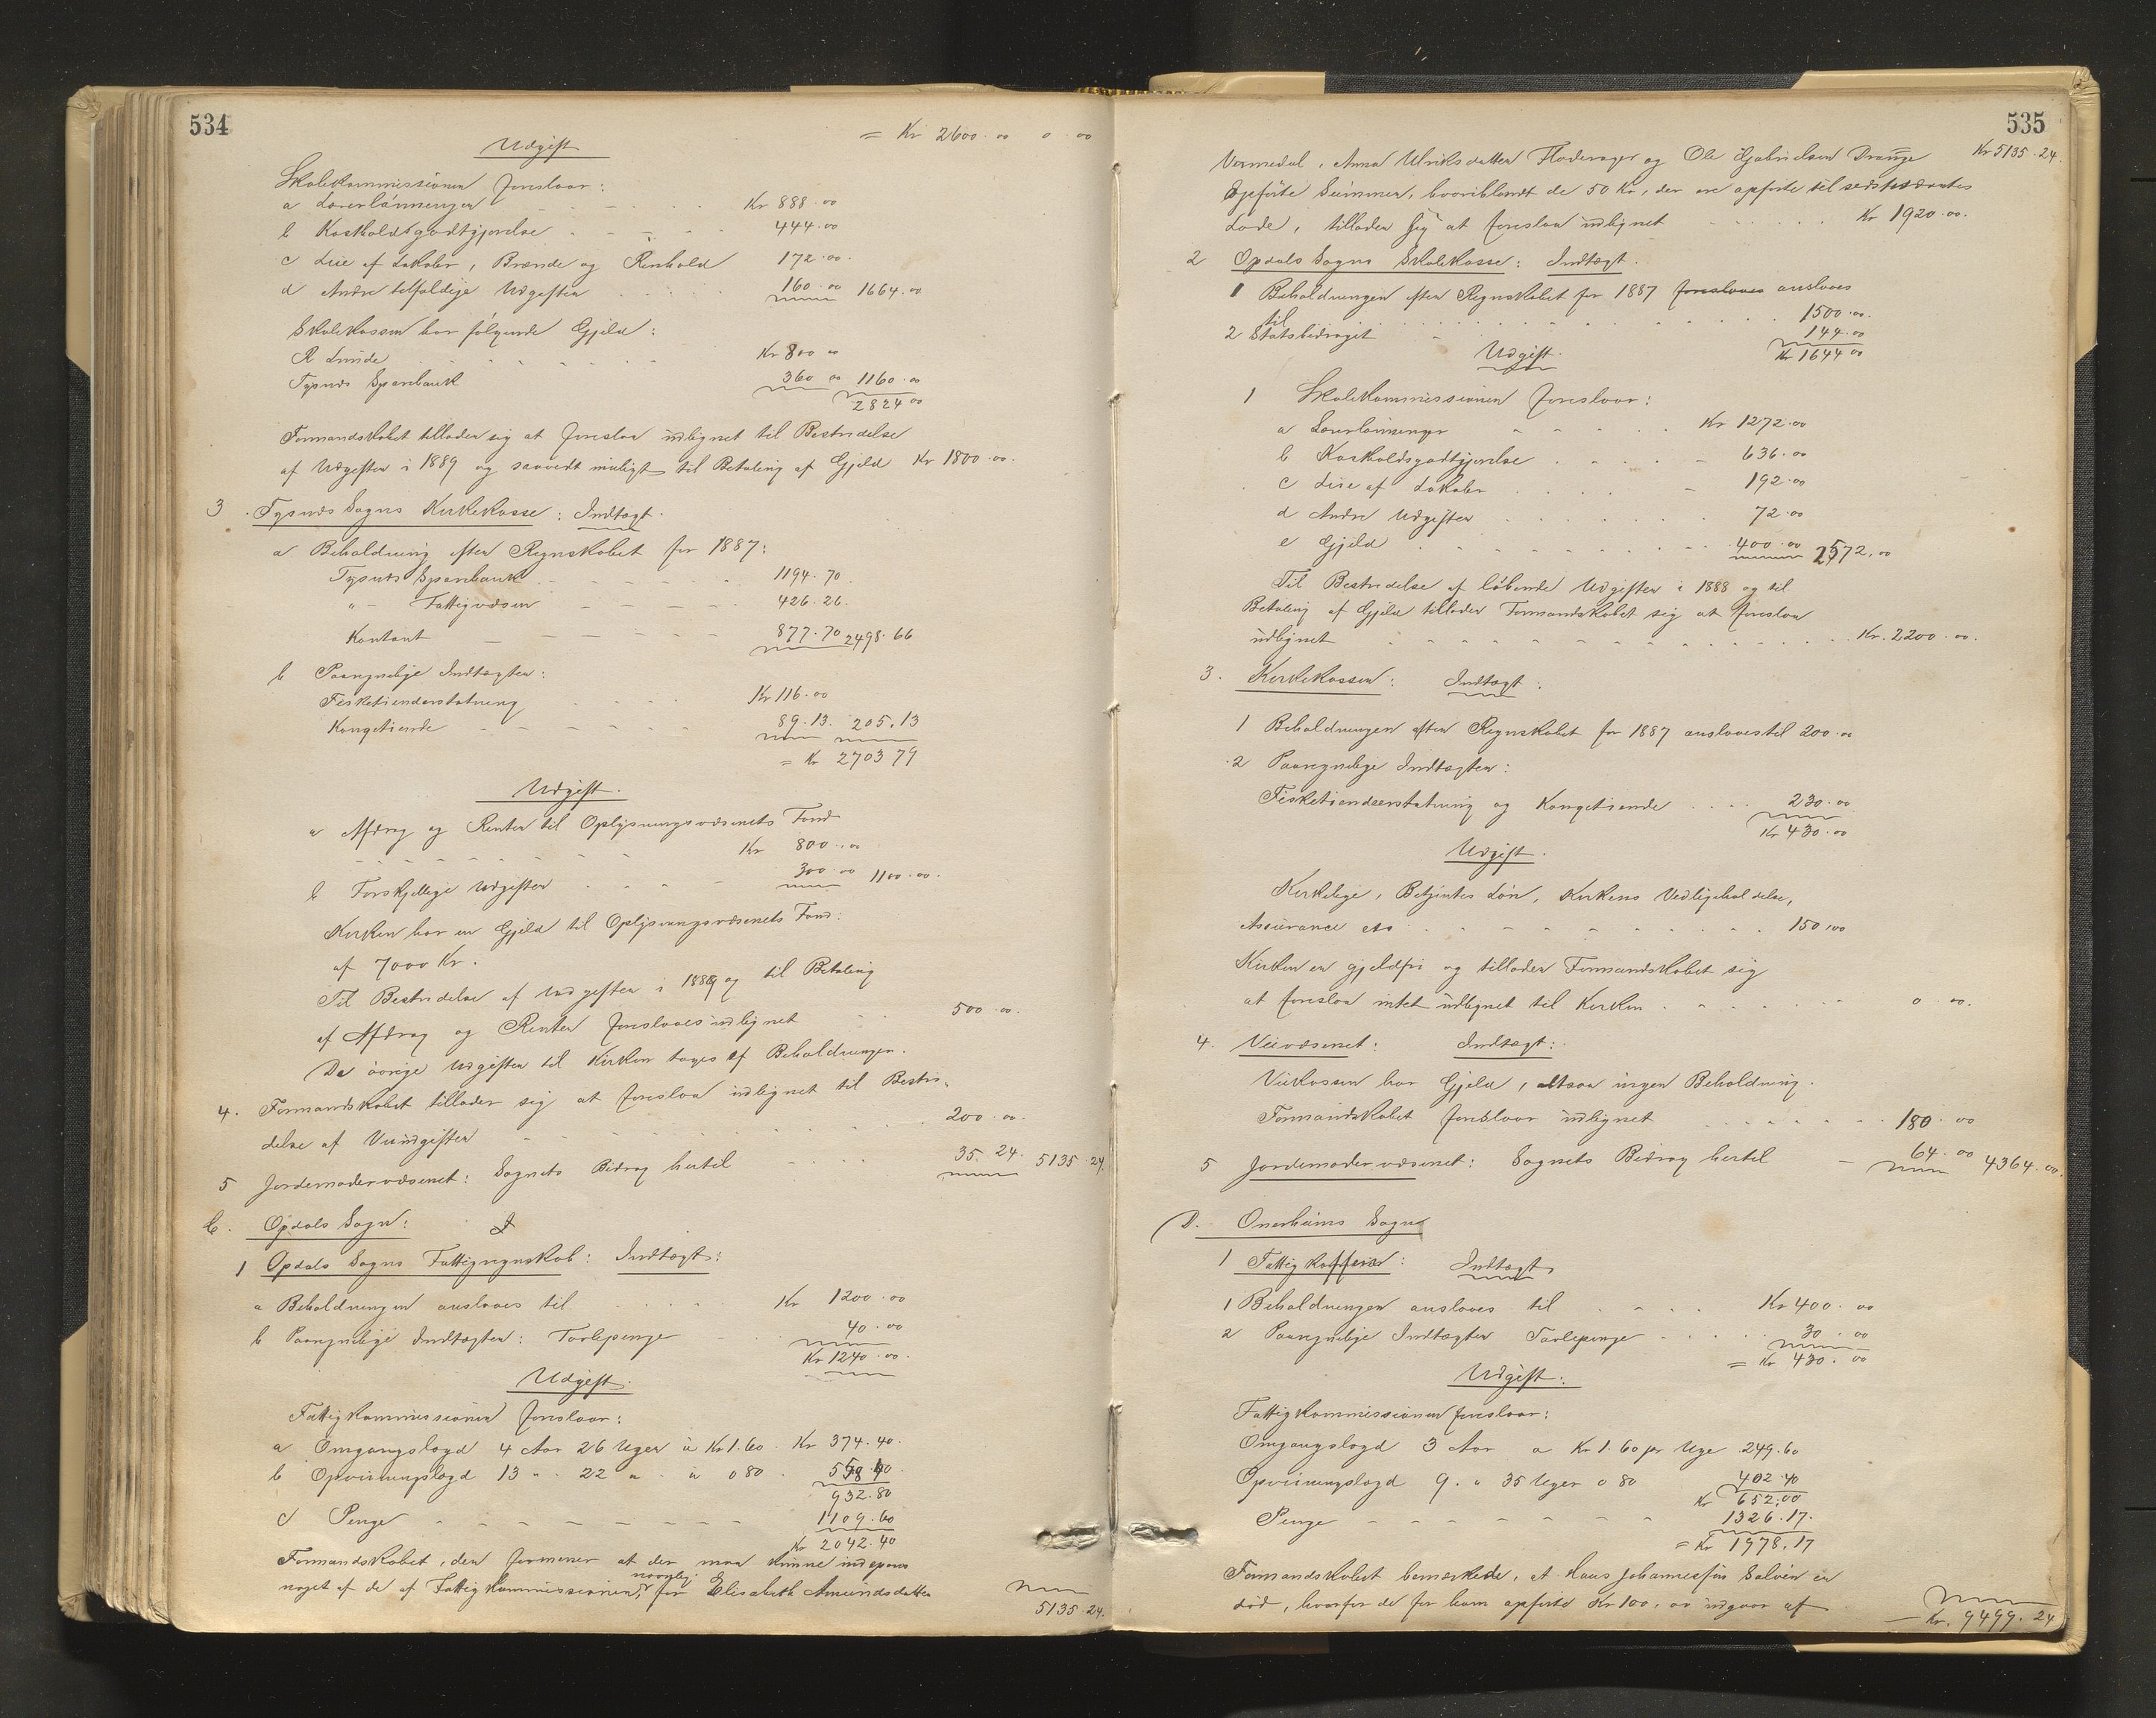 534
= Kr 2600.00 0.00
Udgift
Skolekommissionen foreslaar:
a Lærerlønninger Kr 888.00
b Kostholdsgodtgjørelse 444.00
c Leie af Lokaler, Brænde og Renhold 172.00
d Andre tilfældige Udgifter 160.00 1664.00
Skolekassen har følgende Gjeld:
R Lunde Kr 800 00
Tysnes Sparebank 360 00 1160.00
2824 00
Formandskabet tillader sig at foreslaa udlignet til Bestridelse
af Udgifter i 1889 og saavidt muligt til Betaling af Gjeld Kr 1800.00.
3 Tysnes Sogns Kirkekasse: Indtægt.
a Beholdning efter Regnskabet for 1887:
Tysnes Sparebank 1194.70
" - Fattigvæsen 426.26.
Kontant 877.70 2498.66
b Paaregnelige Indtægter:
Fisketiendeerstatning Kr 116.00
Kongetiende 89.13. 205.13
= Kr 2703 79
Udgift.
a Afdrag og Renter til Oplysningsvæsenets Fond
Kr 800.00
b Forskjellige Udgifter 300.00 1100.00.
Kirken har en Gjeld til Oplysningsvæsenets Fond:
af 7000 Kr.
Til Bestridelse af Udgifter i 1889 og til Betaling
af Afdrag og Renter foreslaaes udlignet 500.00.
De øvrige Udgifter til Kirken tages af Beholdningen.
4. Formandskabet tillader sig at foreslaa udlignet til Bestri-
delse af Veiudgifter 200.00.
5 Jordemodervæsenet: Sognets Bidrag hertil 35.24. 5135.24.
C. Opdals Sogn:
1 Opdals Sogns Fattigregnskab: Indtægt:
a Beholdningen anslaaes til Kr 1200.00
b Paaregnelige Indtægter: Tavlepenge 40.00
Kr 1240.00.
Udgift.
Fattigkommissionen foreslaar:
a Omgangslægd 4 Aar 26 Uger à Kr 1.60. Kr 374.40.
b Opvisningslægd 13 " 22 " à 0 80. 558 40.
932.80
c Penge 1109.60
Kr 2042.40
Formandskabet, der formener at der maa kunne indspares
noget af de af Fattigkommissionen, navnlig for Elisabeth Amundsdatter
5135.24.
535
Vermedal, Anna Ulriksdatter Flodevager og Ole Gabrielsen Drange Kr 5135.24.
Opførte Summer, hvoriblandt de 50 Kr, der ere opførte til sidstnævntes
Lade, tillader sig at foreslaa udlignet Kr 1920.00.
2 Opdals Sogns Skolekasse: Indtægt.
1 Beholdningen efter Regnskabet for 1887 foreslaaes anslaaes
til 1500.00.
2 Statsbidraget 144.00
Kr 1644 00
Udgift.
1 Skolekommissionen foreslaar:
a Lærerlønninger Kr 1272.00
b Kostholdsgodtgjørelse 636.00
c Leie af Lokaler 192.00
d Andre Udgifter 72.00
e Gjeld 400.00 2572.00
Til Bestridelse af løbende Udgifter i 1888 og til
Betaling af Gjeld tillader Formandskabet sig at foreslaa
udlignet Kr. 2200.00.
3. Kirkekassen: Indtægt.
1 Beholdningen efter Regnskabet for 1887 anslaaes til 200.00
2 Paaregnelige Indtægter:
Fisketiendeerstatning og Kongetiende 230.00
Kr 430.00
Udgift.
Kirkelige, Betjentes Løn, Kirkens Vedligeholdelse,
Assurance etc 150.00
Kirken er gjeldfri og tillader Formandskabet sig
at foreslaa intet udlignet til Kirken 0.00.
4. Veivæsenet: Indtægt:
Veikassen har Gjeld, altsaa ingen Beholdning.
Formandskabet foreslaar udlignet 180.00
5 Jordemodervæsenet: Sognets Bidrag hertil 64.00 4364.00.
D. Onerheims Sogn
1 Fattigkassen: Indtægt
1 Beholdningen anslaaes til Kr 400.00
2 Paaregnelige Indtægter Tavlepenge 30.00
= Kr 430.00
Udgift:
Fattigkommissionen foreslaar:
Omgangslægd 3 Aar a Kr 1.60 pr Uge 249.60
Opvisningslægd 9. " 35 Uger 0 80 402.40
Kr 652.00
Penge 1326.17.
= Kr 1978.17
Formandskabet bemærkede, at Hans Johannessøn Salven er
død, hvorfor de for ham opførte Kr 100.00 udgaar af
Kr. 9499.24